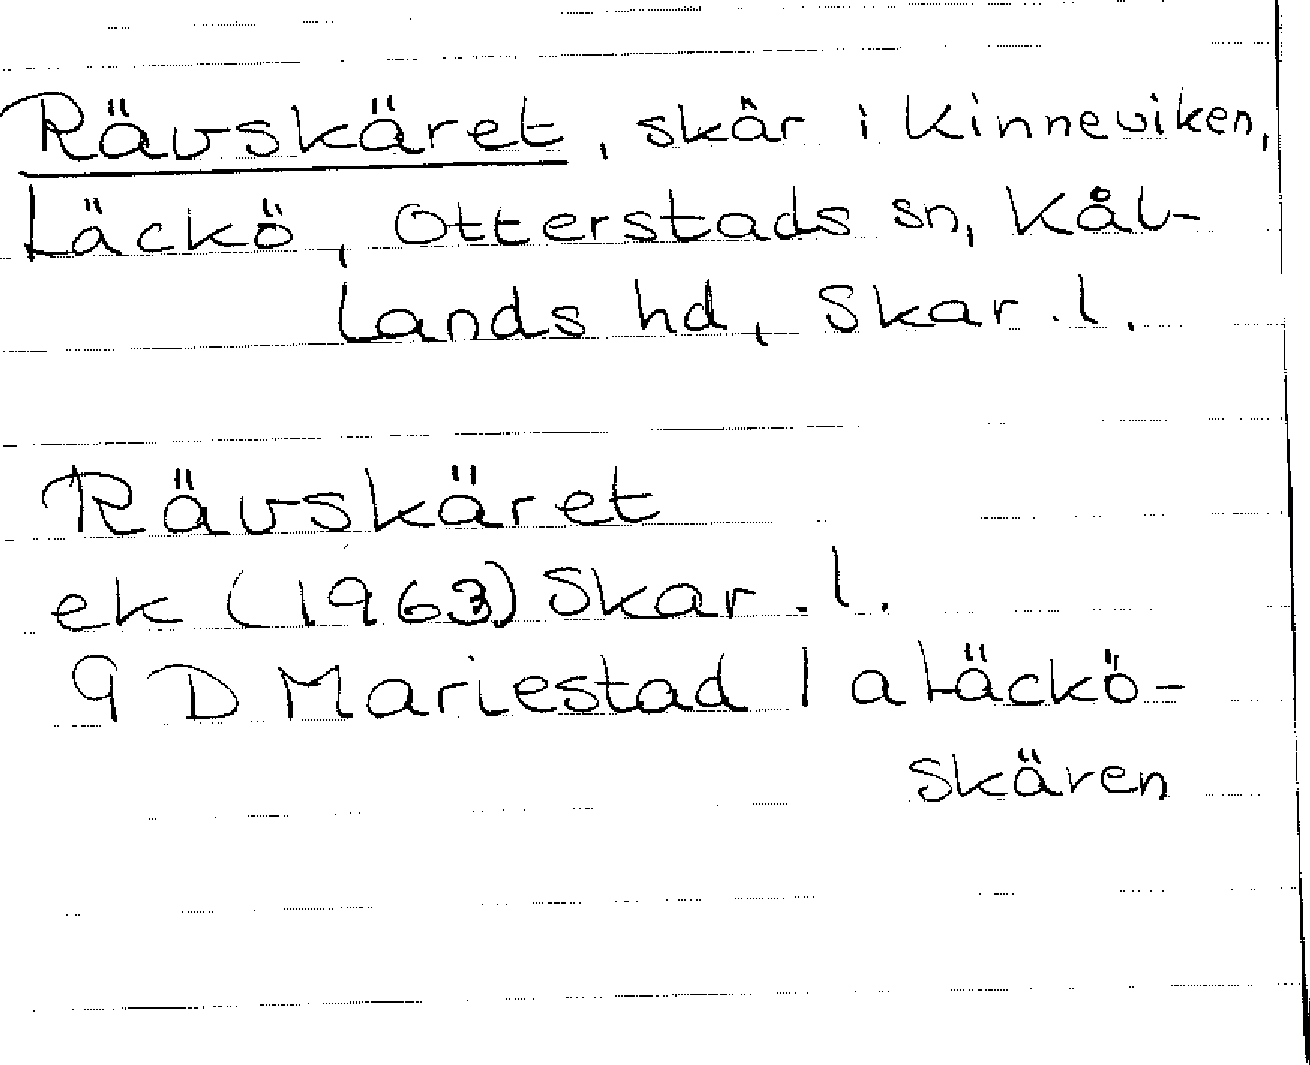 Rävskäret, skär i Kinneviken,
Läckö, Otterstads sn, Kål-
lands hd, Skar. l.
Rävskäret
ek (1963) Skar. l.
9 D Mariestad 1 a Läckö-
skären